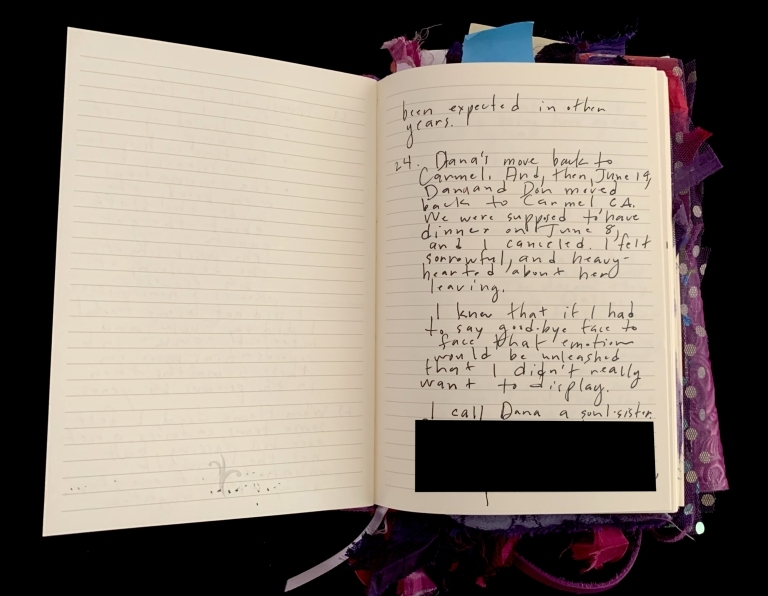 been expected in other
years.
24. Dana's move back to
Carmel. And, then, June 19,
Dana and Don moved
back to Carmel CA.
We were supposed to have
dinner on June 8,
and I canceled. I felt
sorrowful, and heavy-
hearted about her
leaving.
I knew that if I had
to say good-bye face to
face that emotion
would be unleashed
that I didn't really
want to display.
I call Dana a soul-sister